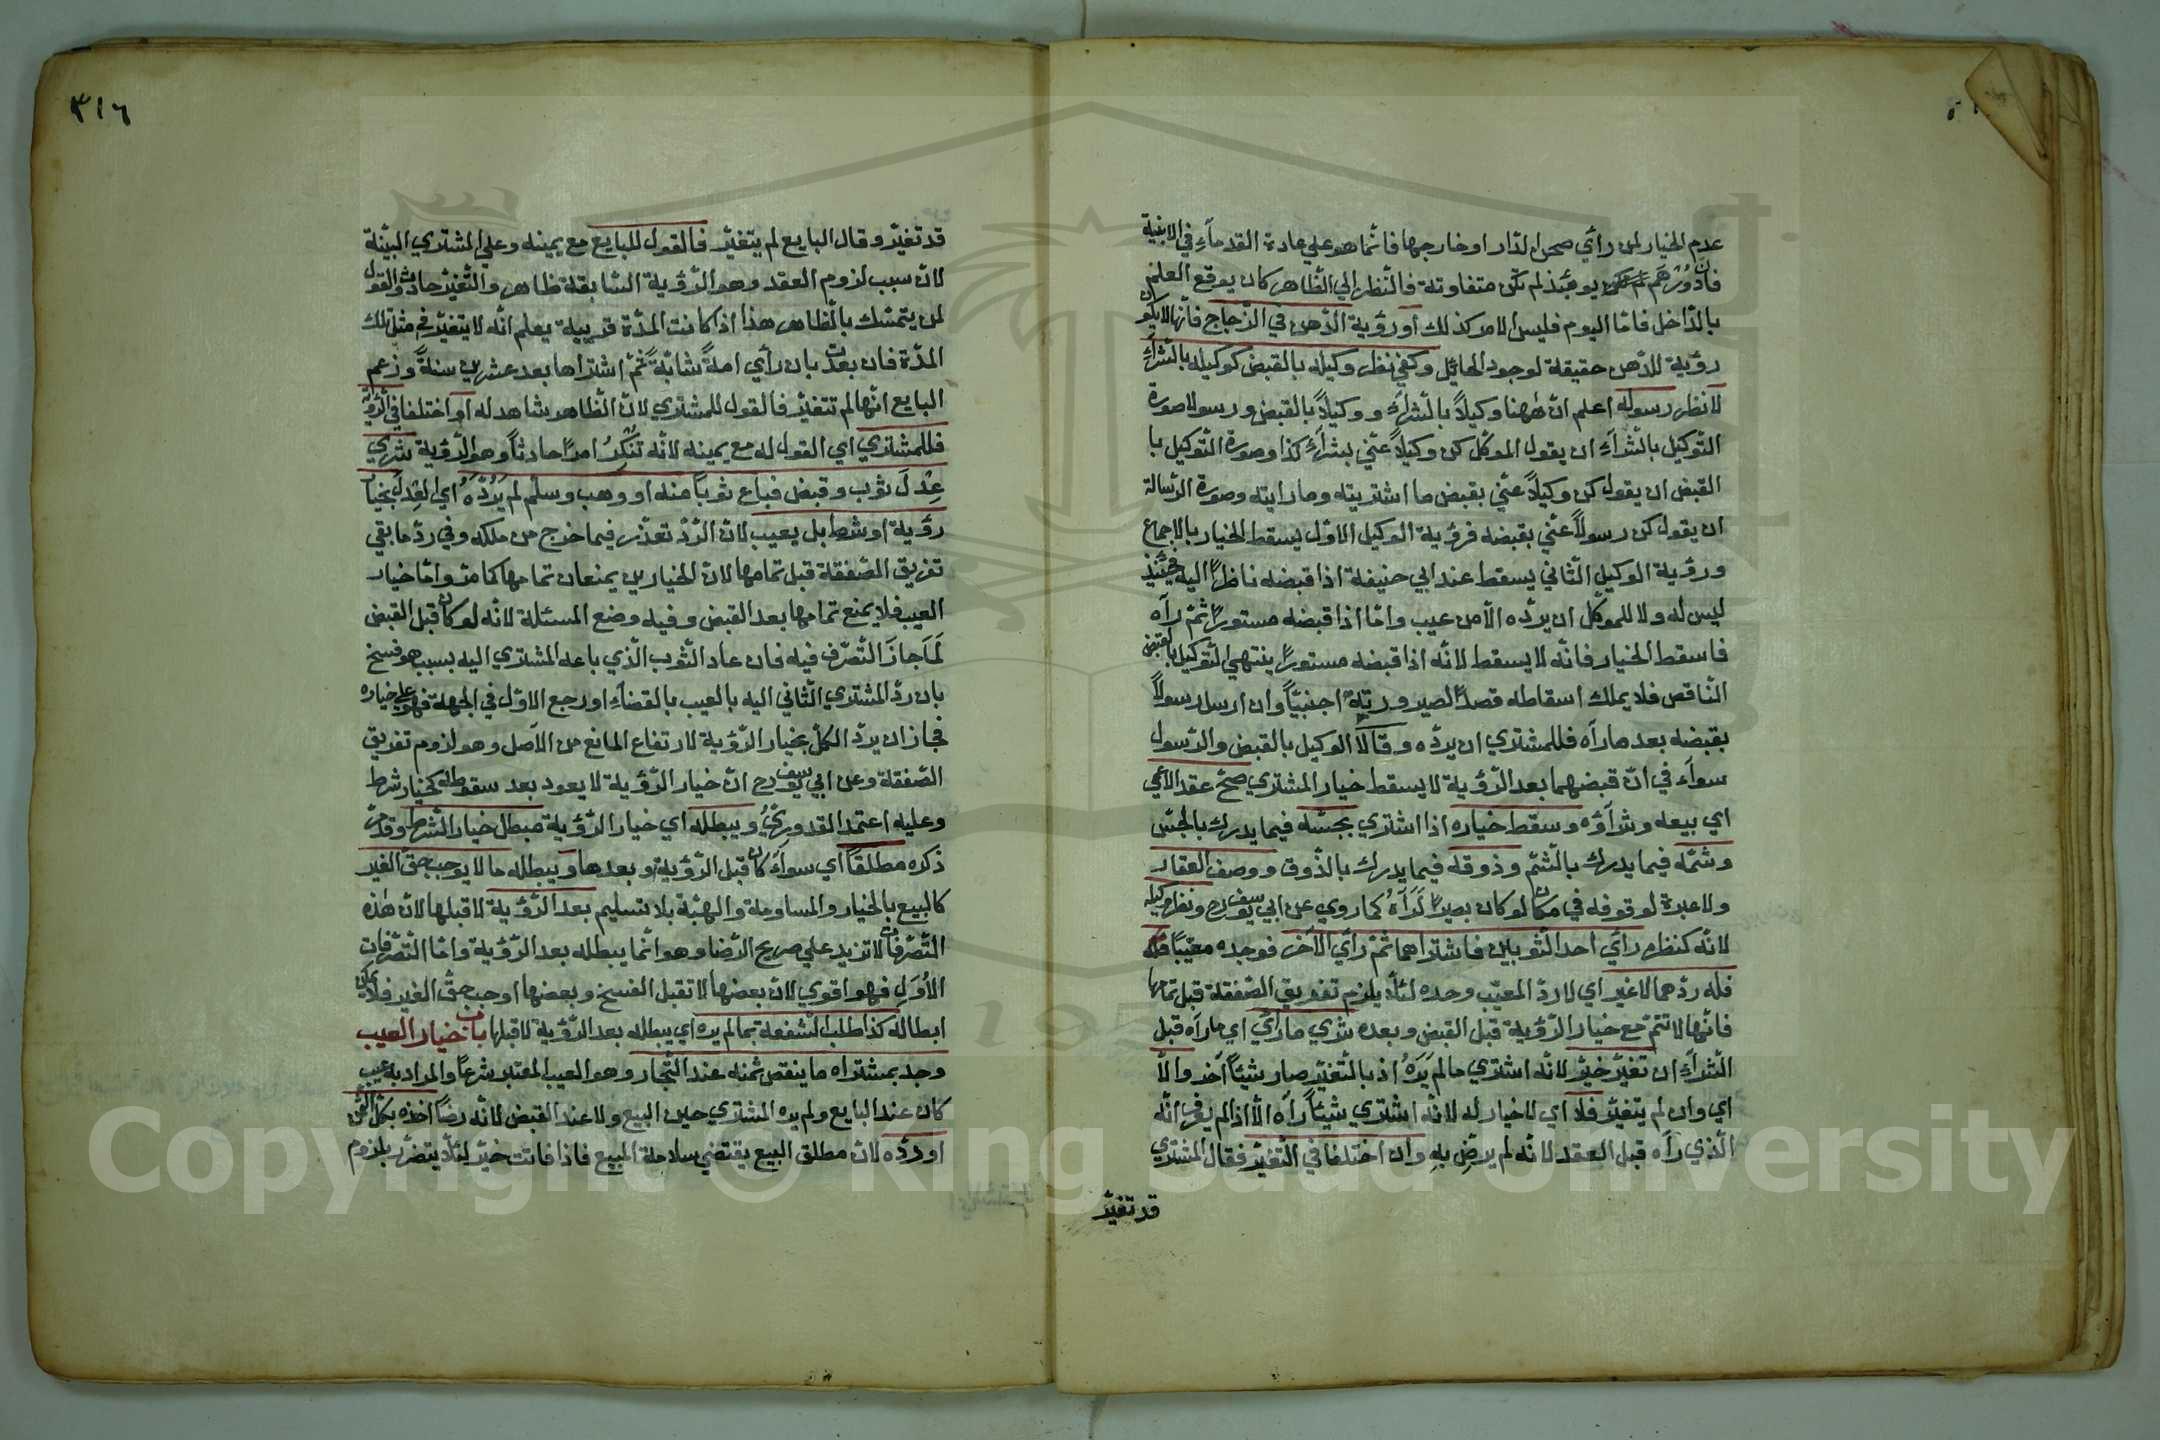 عدم الخيار لمن رأي صحن الدّار او خارجها فانّما هو علي عادة القدماۤء في الابنية
فانّ دُوْرَهم يومئذ لم تكن متفاوتة فالنّظر الي الظّاهر كان يوقع العلم
بالدّاخل فامّا اليوم فليس الامر كذلك أو رؤية الدّهن في الزّجاج فانّها لا يكون
رؤية للدّهن حقيقة لوجود الحائل وكفي نظر وكيله بالقبض كوكيله بالشّراۤء
لا نظر رسوله اعلم انّ ههنا وكيلاً بالشّراۤء و وكيلاً بالقبض و رسولا صورة
التّوكيل بالشّراۤء ان يقول الموكّل كن وكيلاً عنّي بشراۤء كذا وصورة التّوكيل با
القبض ان يقول كن وكيلاً عنّي بقبض ما اشتريته وما رايته وصورة الرّسالة
ان يقول كن رسولاً عنّي بقبضه فرؤية الوكيل الاوّل يسقط الخيار بالاجماع
ورؤية الوكيل الثّاني يسقط عند ابي حنيفة اذا قبضه ناظراً اليه فحينئذ
ليس له ولا للموكّل ان يردّه الّا من عيب وامّا اذا قبضه مستوراً ثمّ رآه
فاسقط الخيار فانّه لا يسقط لانّه اذا قبضه مستوراً ينتهي التّوكيل بالقبض
النّاقص فلا يملك اسقاطه قصداً لصيرورته اجنبيّاً وان ارسل رسولاً
بقبضه بعد ما رآه فللمشتري ان يردّه وقالَا الوكيل بالقبض والرّسول
سواۤء في انّ قبضهما بعد الرّؤية لا يسقط خيار المشتري صحّ عقد الاعمي
اي بيعه وشراؤه وسقط خياره اذا اشتري بجسّه فيما يدرك بالجسّ
وشمّه فيما يدرك بالشّم وذوقه فيما يدرك بالذّوق ووصف العقار
ولا عبرة لوقوفه في مكان لو كان بصيراً لَرَآهُ كما روي عن ابي يوسف رح ونظر وكيله
لانّه كنظره رأي احد الثّوبين فاشتراهما ثمّ رأي الآخر فوجده معيّبا فله
فله ردّهما لا غير اي لا ردّ المعيّب وحده لئلّا يلزم تفريق الصّفقة قبل تمامها
فانّها لا تتمّ مع خيار الرّؤية قبل القبض وبعده شري ما رأي اي ما رآه قبل
الشّراۤء ان تغيّر خيّر لانّه اشتري ما لم يَرَهُ اذ بالتّغيّر صار شيئاً آخر والّا
اي وان لم يتغيّر فلا اي لا خيار له لانّه اشتري شيئاً رآه الّا اذا لم يعرف انّه
الّذي رآه قبل العقد لانّه لم يرضِ بهِ وان اختلفا في التّغيّر فقال المشتري
قد تغيّر
٣١٦
قد تغيّر وقال البايع لم يتغيّر فالقول للبايع مع يمينه وعلي المشتري البيّنة
لانّ سبب لزوم العقد وهو الرّؤية السّابقة ظاهر والتّغيّر حادث والقول
لمن يتمسّك بالظّاهر هذا اذا كانت المدّة قريبة يعلم انّه لا يتغيّر في مثل تلك
المدّة فان بعدت بان رأي امةً شابّةً ثمّ اشتراها بعد عشرين سنةً وزعم
البايع انّها لم تتغيّر فالقول للمشتري لانّ الظّاهر شاهد له أو اختلفا في الرّؤية
فللمشتري اي القول له مع يمينه لانّه تُنكِرُ امراً حادثاً وهو الرّؤية شري
عِدْلَ ثوب وقبض فباع ثوباً منه او وهب وسلّم لم يَرُدَّهُ اي العِدلَ بخيار
رؤية او شرط بل بعيب لانّ الرّدّ تعذّر فيما خرج من ملكه وفي ردّ ما بقي
تفريق الصّفقة قبل تمامها لانّ الخيارين يمنعان تمامها كما مرّ وامّا خيار
العيب فلا يمنع تمامها بعد القبض وفيه وضع المسئلة لانّه لو كان قبل القبض
لَمَا جازَ التّصرّف فيه فان عاد الثّوب الّذي باعه المشتري اليه بسبب هو فسخ
بان ردّ المشتري الثّاني اليه بالعيب بالقضاۤء او رجع الاوّل في الهبة فهو علي خياره
فجاز ان يردّ الكلّ بخيار الرّؤية لارتفاع المانع من الاصل وهو لزوم تفريق
الصّفقة وعن ابي يوسف رح انّ خيار الرّؤية لا يعود بعد سقوطه كخيار شرط
وعليه اعتمد القدوريُّ ويبطله اي خيار الرّؤية مبطل خيار الشّرط وقد مرّ
ذكره مطلقاً اي سواۤءً كان قبل الرّؤية و بعدها ويبطله ما لا يوجب حقّ الغير
كالبيع بالخيار والمساومة والهبة بلا تسليم بعد الرّؤية لا قبلها لانّ هذه
التّصرّفات لا تزيد علي صريح الرّضا وهو انّما يبطله بعد الرّؤية وامّا التّصرّفات
الاُوَلِ فهو اقوي لانّ بعضها لا تقبل الفسخ وبعضها اوجب حقّ الغير فلا يمكن
ابطاله كذا طلب الشّفعة بما لم يره اي يبطله بعد الرّؤية لا قبلها باب خيار العيب
وجد بمشتراه ما ينقص ثمنه عند التّجار وهو العيب المعتبر شرعاً والمراد به عيب
كان عند البايع ولم يره المشتري حين البيع ولا عند القبض لانّه رضاً اخذه بكلّ الثّمن
او ردّه لانّ مطلق البيع يقتضي سلامة المبيع فاذا فاتت خيّر لئلّا يتضرّر بلزوم
Copyright © King Saud University